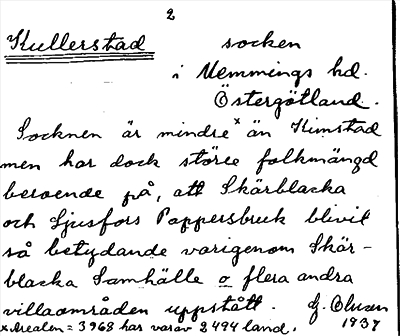 2
Kullerstad socken
i Memmings hd.
Östergötland.
Socknen är mindre x än Kimstad
men har dock större folkmängd
beroende på, att Skärblacka
och Ljusfors Pappersbruk blivit
så betydande varigenom Skär-
blacka Samhälle o flera andra
villaområden uppstått. G. Olsson
x Arealen = 3968 har varav 2494 land. 1937